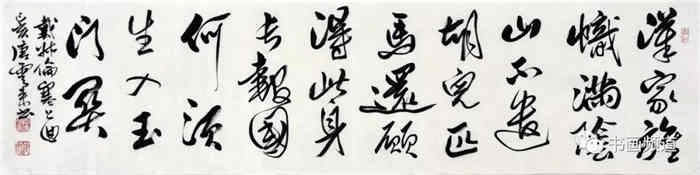 漢家旌
幟滿陰
山不遣
胡兒匹
馬還願
得此身
長報國
何須
生入玉
門關
戴叔倫塞上曲
书画频道